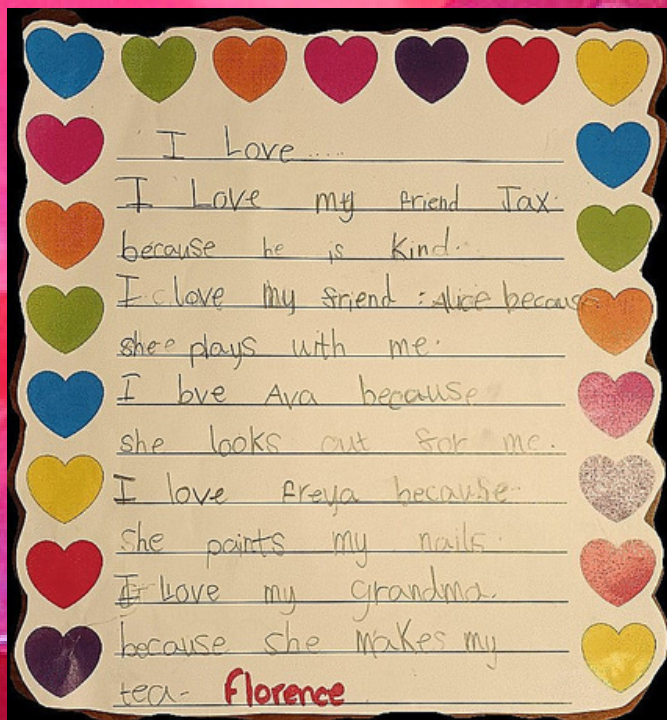 I Love....
I Love my friend Jax.
because he is Kind.
I love my friend Alice because
shee plays with me.
I bve Ava because
she looks out for me.
I love freya because
she paints my nails.
I Love my grandma.
because she makes my
tea- Florence